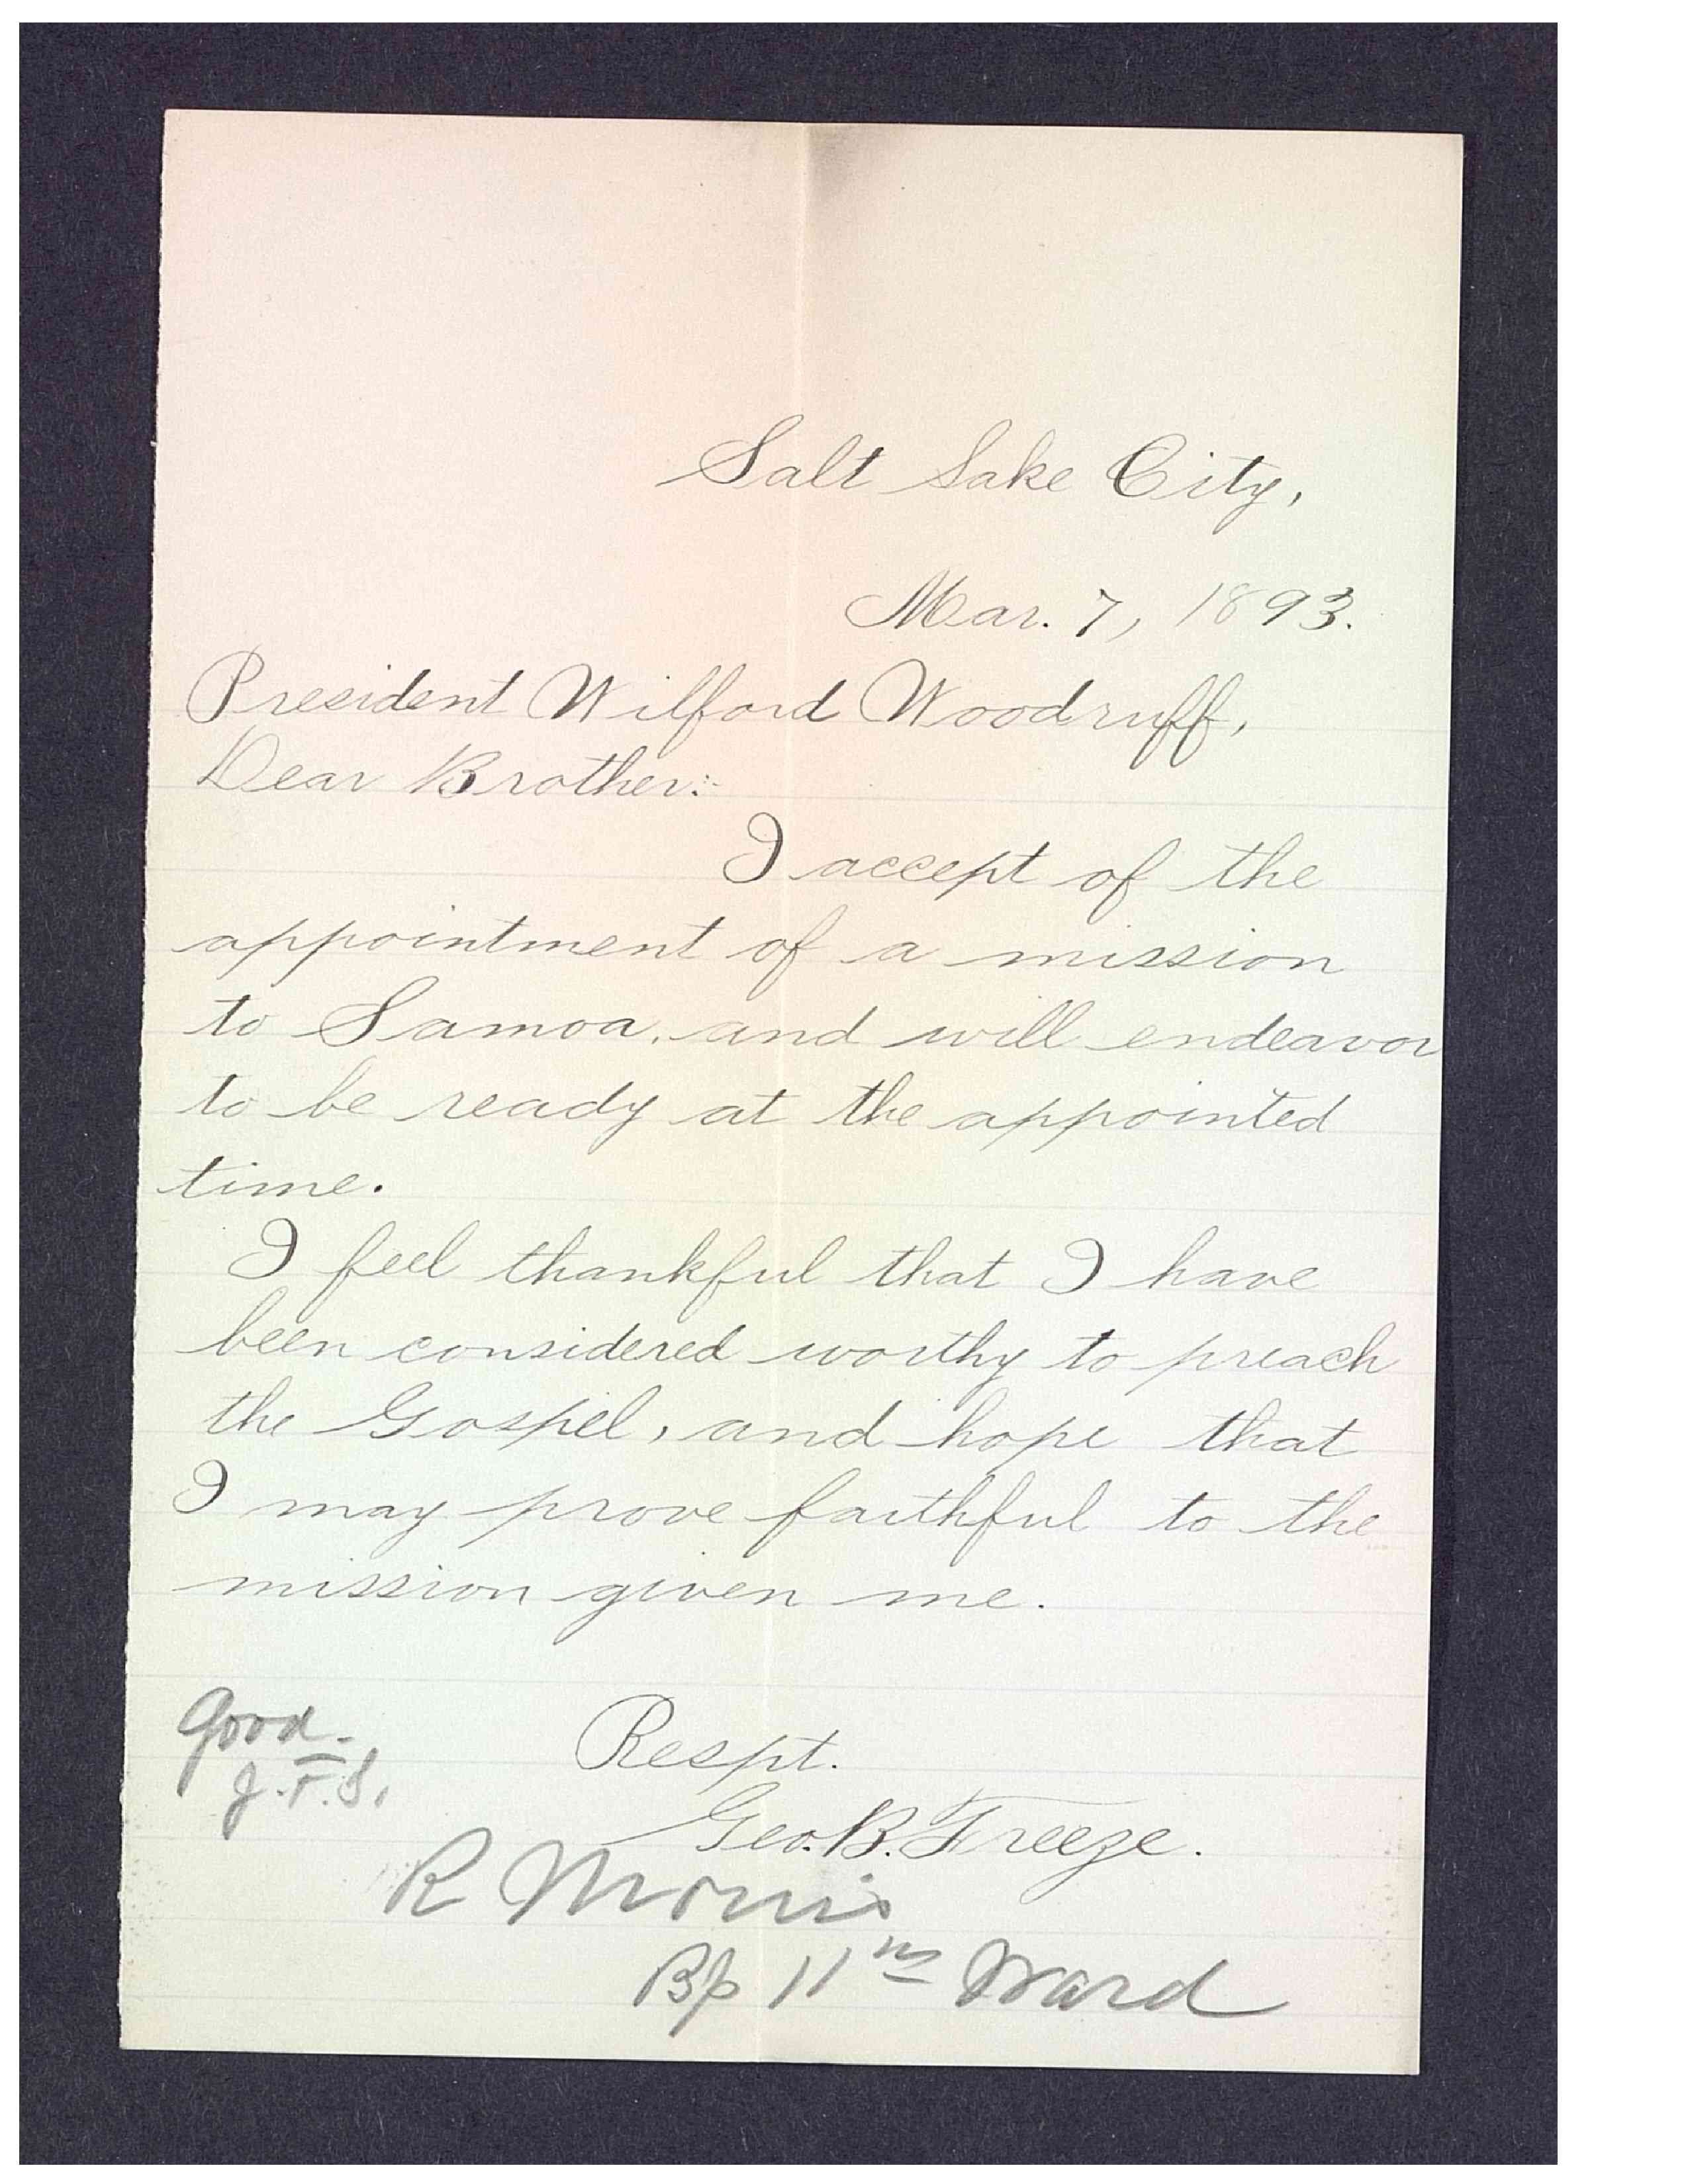 Salt Lake City,
Mar. 7, 1893.
President Wilford Woodruff,
Dear Brother:-
I accept of the
appointment of a mission
to Samoa, and will endeavor
to be ready at the appointed
time.
I feel thankful that I have
been considered worthy to preach
the Gospel, and hope that
I may prove faithful to the
mission given me.
Respt.
Geo. B. Freeze.
Good.
J. F. S.
R Morris
Bp 11th Ward